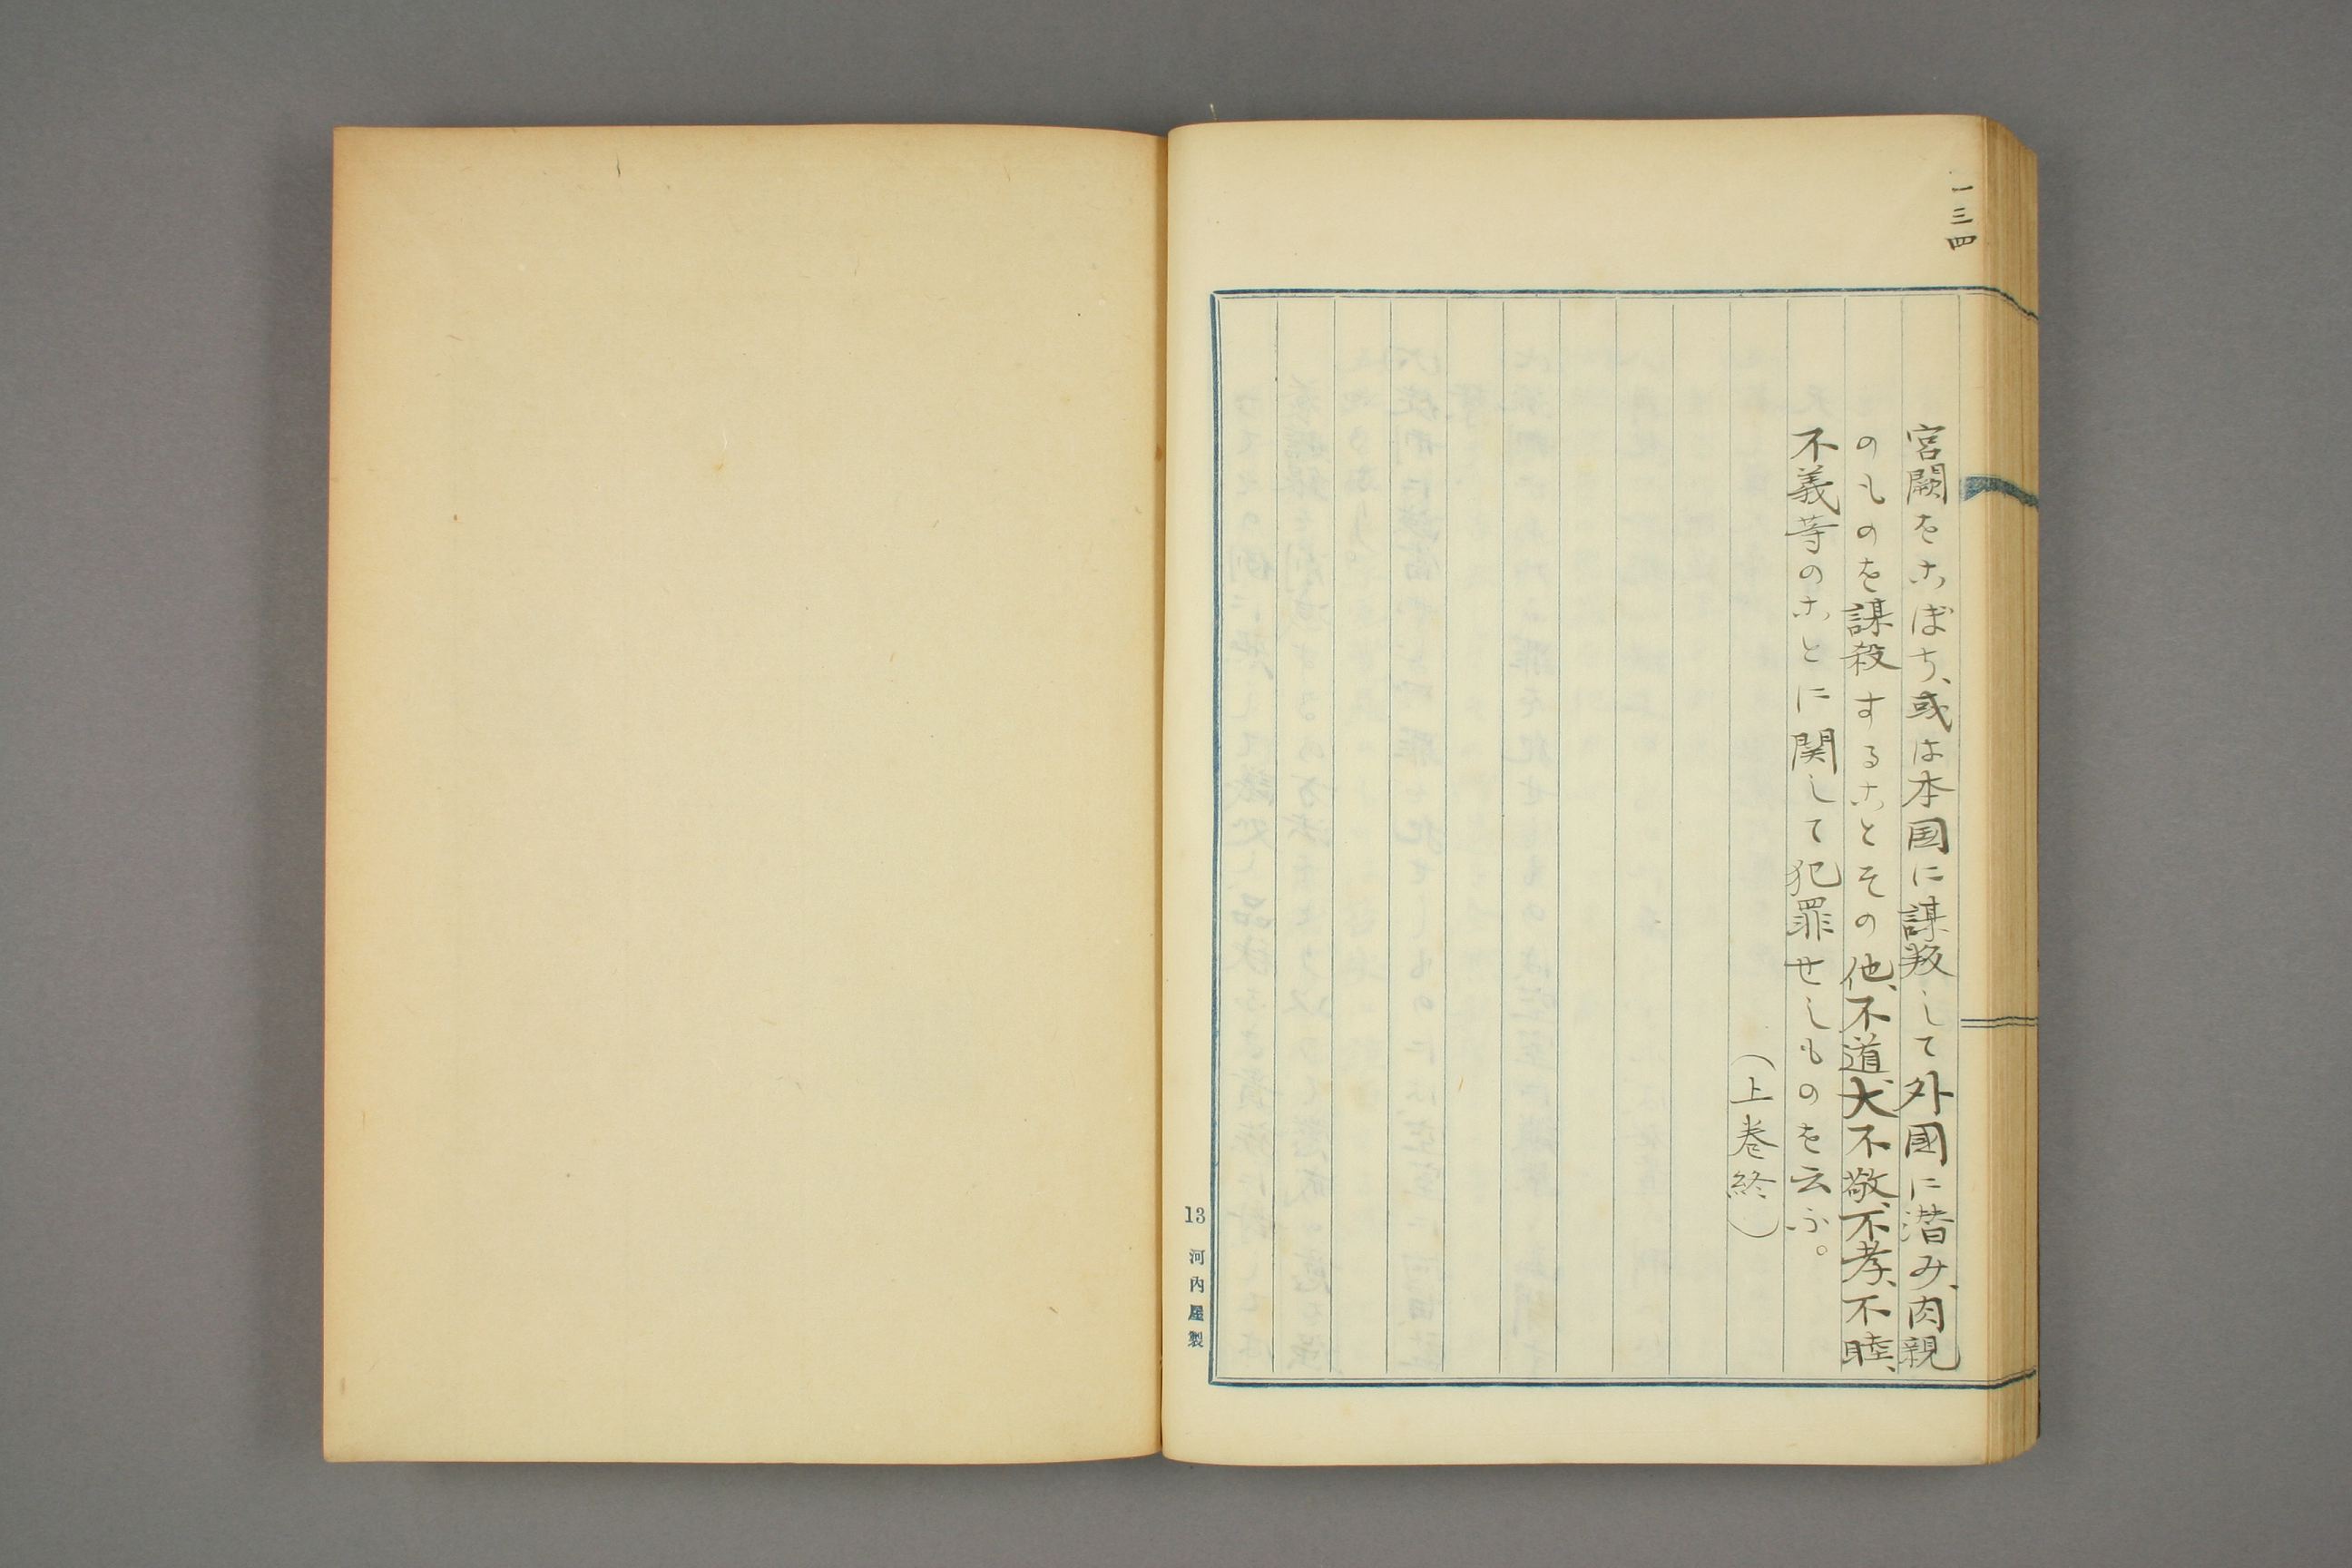 一三四
宮闕をこぼち、或は本国に謀叛して外國に潜み、肉親
のものを謀殺することその他、不道、大不敬、不孝、不睦、
不義等のことに関して犯罪せしものを云ふ。
(上巻終)
13 河内屋製